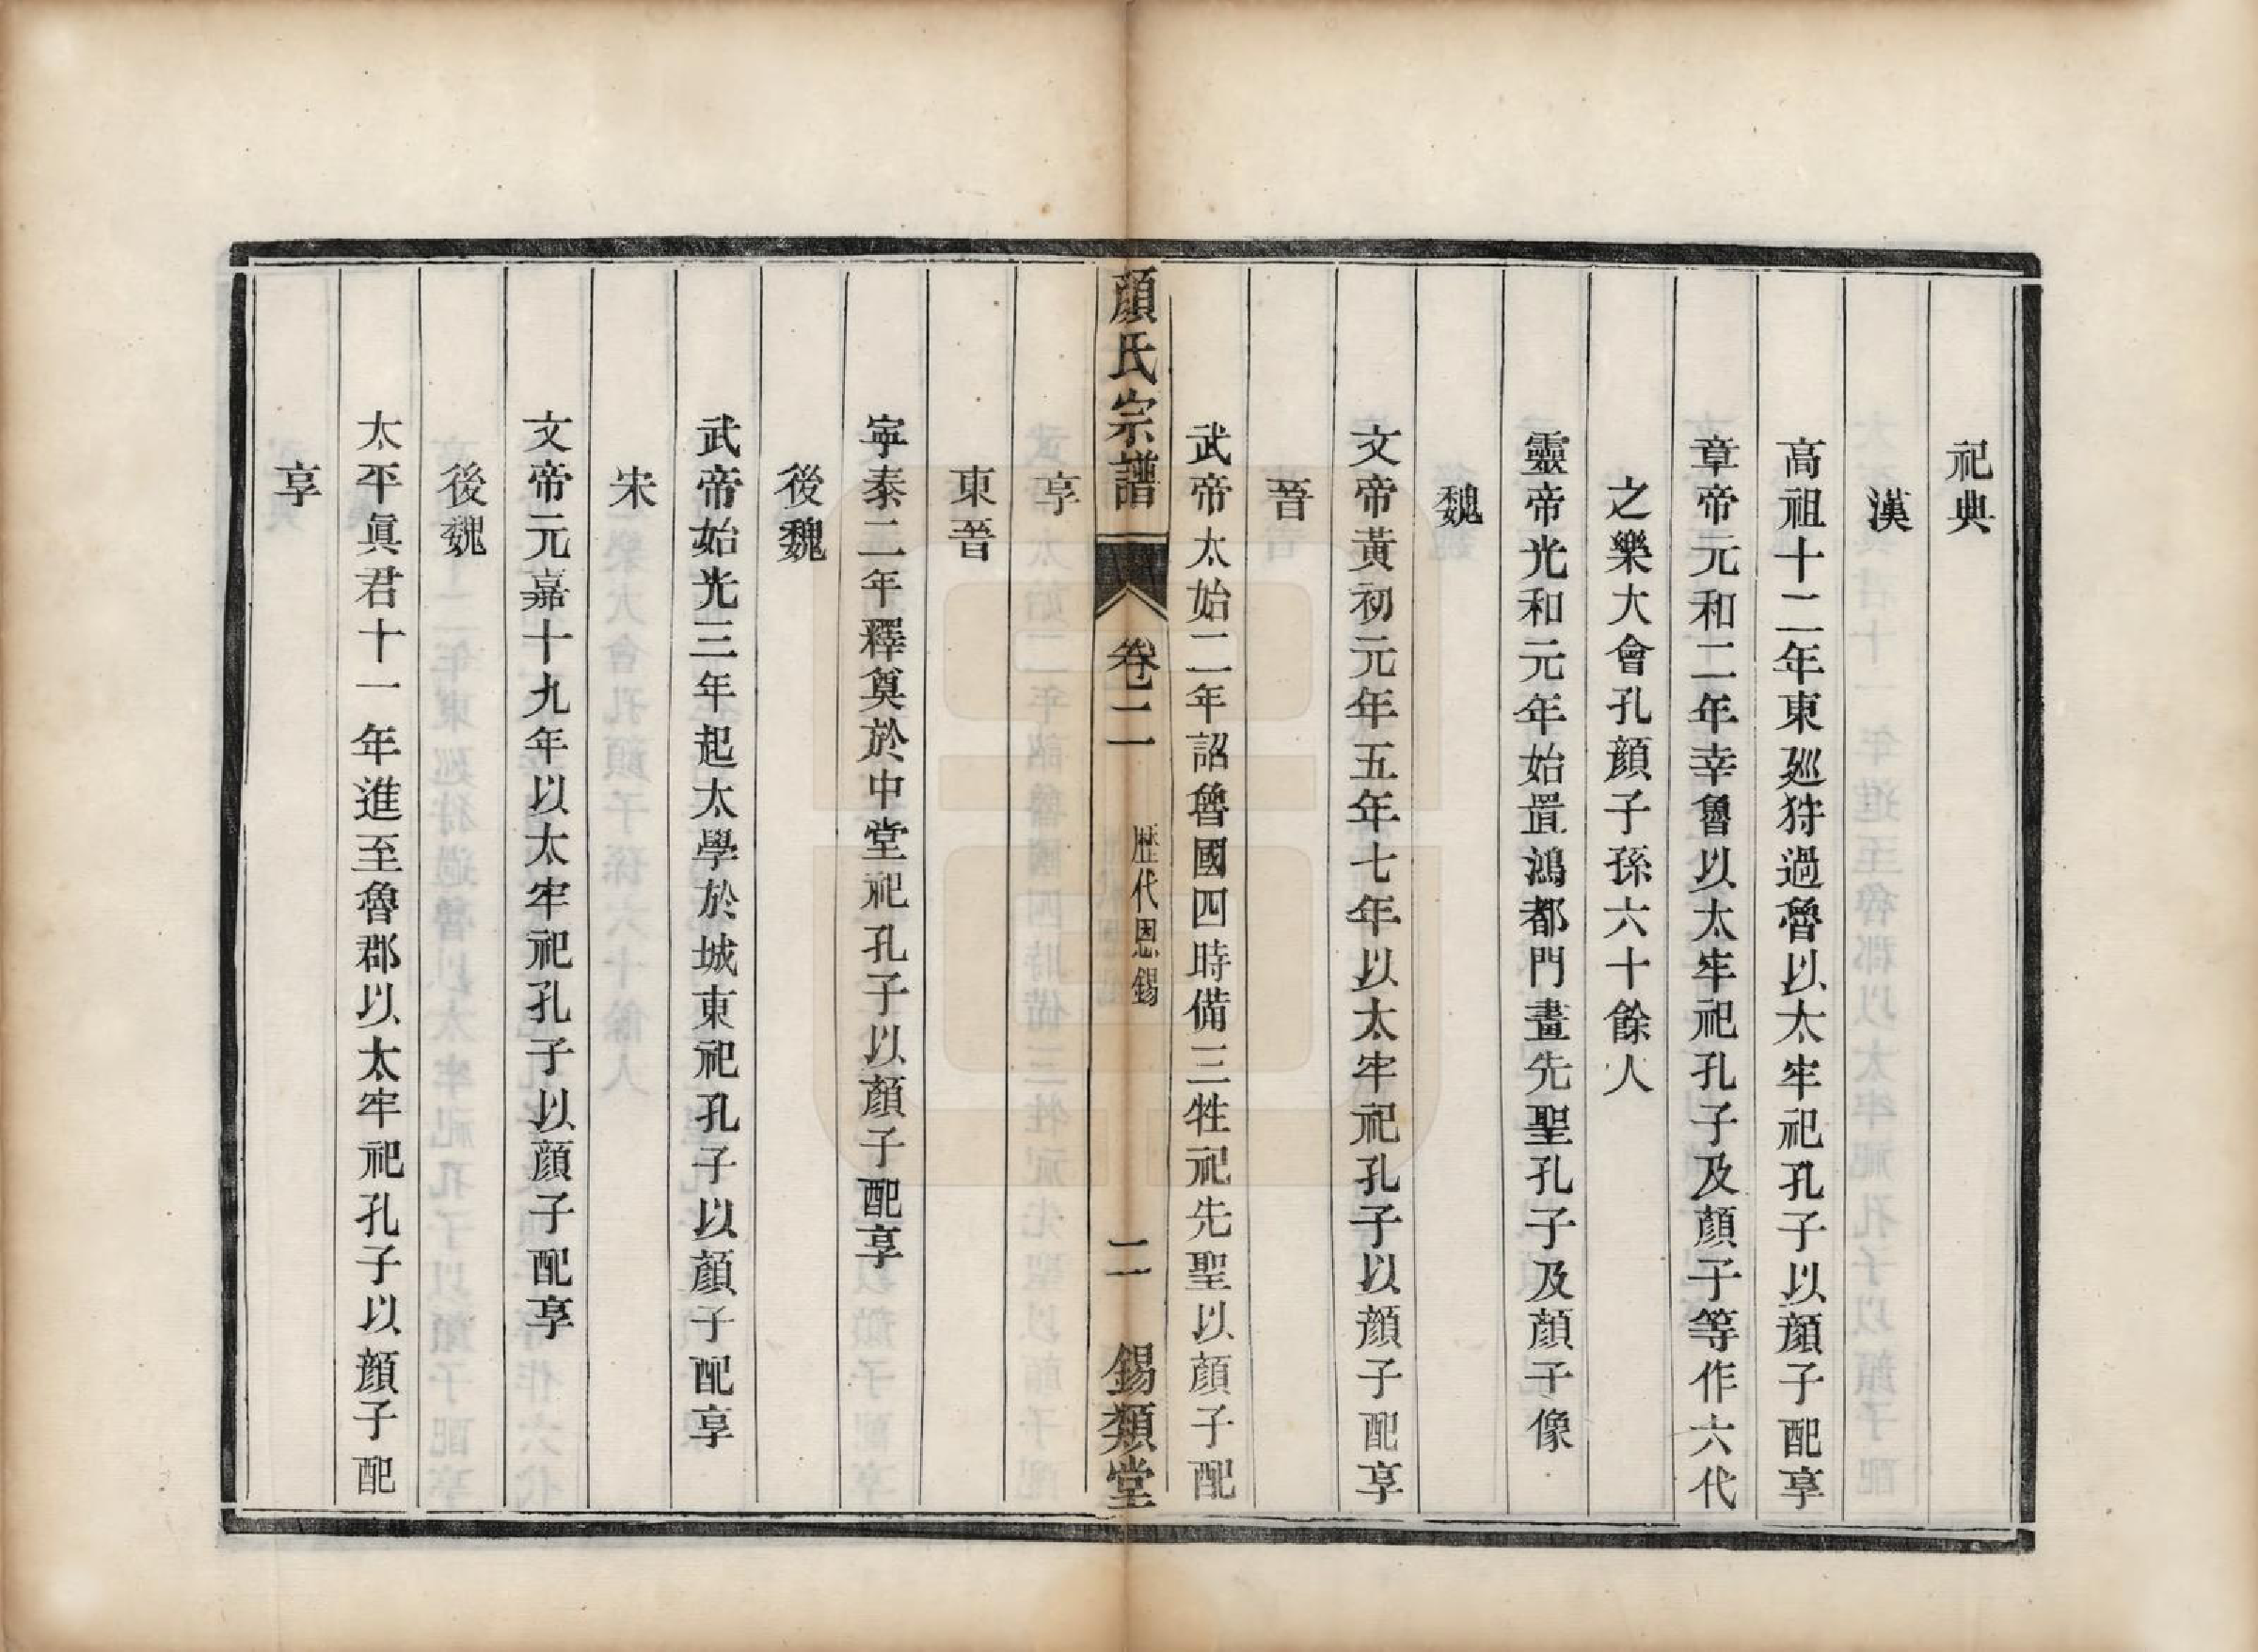 祀典
漢
高祖十二年東廵狩過魯以太牢祀孔子以顔子配享
章帝元和二年幸魯以太牢祀孔子及顔子等作六代
之樂大會孔顔子孫六十餘人
靈帝光和元年始置鴻都門畫先聖孔子及顔子像
魏
文帝黃初元年五年七年以太牢祀孔子以顔子配享
晉
武帝太始二年詔魯國四時備三牲祀先聖以顔子配
顔氏宗譜 卷二 歴代恩錫 二 錫類堂
享
東晉
寧泰二年釋奠於中堂祀孔子以顔子配享
後魏
武帝始光三年起太學於城東祀孔子以顔子配享
宋
文帝元嘉十九年以太牢祀孔子以顔子配享
後魏
太平眞君十一年進至魯郡以太牢祀孔子以顔子配
享